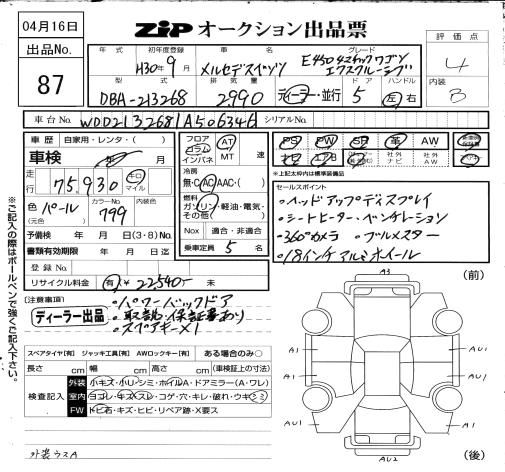 04月16日
ZIP オークション出品票
出品No.
87
年式
初年度登録
車名
グレード
評価点
H30年9月
メルセデスベンツ
E450 4マチックワゴン
エクスクルーシブ
4
型式
排気量
ドア
ハンドル
内装
DBA-213268
2990
ディーラー・並行
5
左 右
B
車台No.
WDD2132681A506346
シリアルNo.
車歴
自家用・レンタ・( )
車検
年 月
走行
75,930
キロ
マイル
色
パール
(元色)
カラーNo.
799
内装色
予備検 年 月 日(3・8)No.
書類有効期限 年 月 日迄
登録No.
リサイクル料金
有 ¥22540- 未
フロア
コラム
インパネ
AT
MT
速
冷房
無・C・AC・AAC・( )
燃料
ガソリン・軽油・電気・
その他( )
Nox
適合・非適合
乗車定員 5 名
PS
PW
SR
革
AW
ナビ
エアB
社外
ナビ
社外
AW
※上記太わ内は標準装備品
セールスポイント
・ヘッドアップディスプレイ
・シートヒーター・ベンチレーション
・360°カメラ ・ブルメスター
・18インチアルミホイール
注意事項
ディーラー出品
・パワーバックドア
・取説・保証書あり
・スペアキー×1
※ご記入の際はボールペンで強くご記入下さい。
スペアタイヤ【有】 ジャッキ工具【有】 AWロックキー【有】 ある場合のみ○
長さ cm 幅 cm 高さ cm (車検証上の寸法)
検査記入
外装
小キズ・小リ・シミ・ホイルA・ドアミラー(A・ワレ)
室内
ヨゴレ・キズ・スレ・コゲ・穴・キレ・破れ・ウキ・シミ
FW
トビ石・キズ・ヒビ・リペア跡・X要ス
外装ウスA
(前)
A3
A1
AU1
A1
AU1
AU1
AU1
AU2
(後)